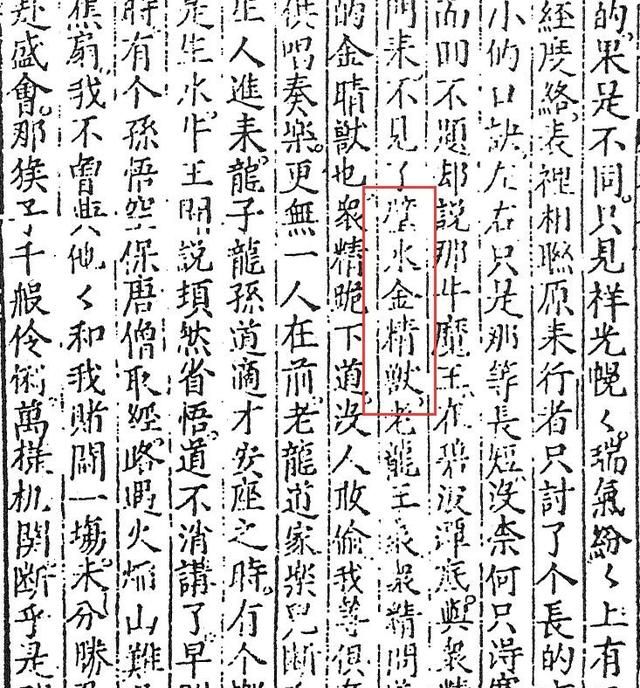 的。果是不同。只見祥光幌〻。瑞氣紛〻。上有
經度絡。表裡相聯。原來行者只討了个長的
小的口訣。左右只是那等長短。沒柰何只得
而回不題。却說那牛魔王在碧波潭底。與衆精
門來不見了水金精獸。老龍王聚衆精問道
的金睛獸也。衆精跪下道。沒人敢偷。我等俱在
供唱奏樂。更無一人在前。老龍道家樂兒斷
生人進來。龍子龍孫道適才安座之時。有个
是生牛王聞說頓然省悟。道不消講了。早
時有个孫悟空保唐僧取經。路遇火焰山難
焦扇。我不曾與他〻和我賭鬪一場。未分勝
赴盛會。那猴子千般伶俐。萬樣机關。斷乎是